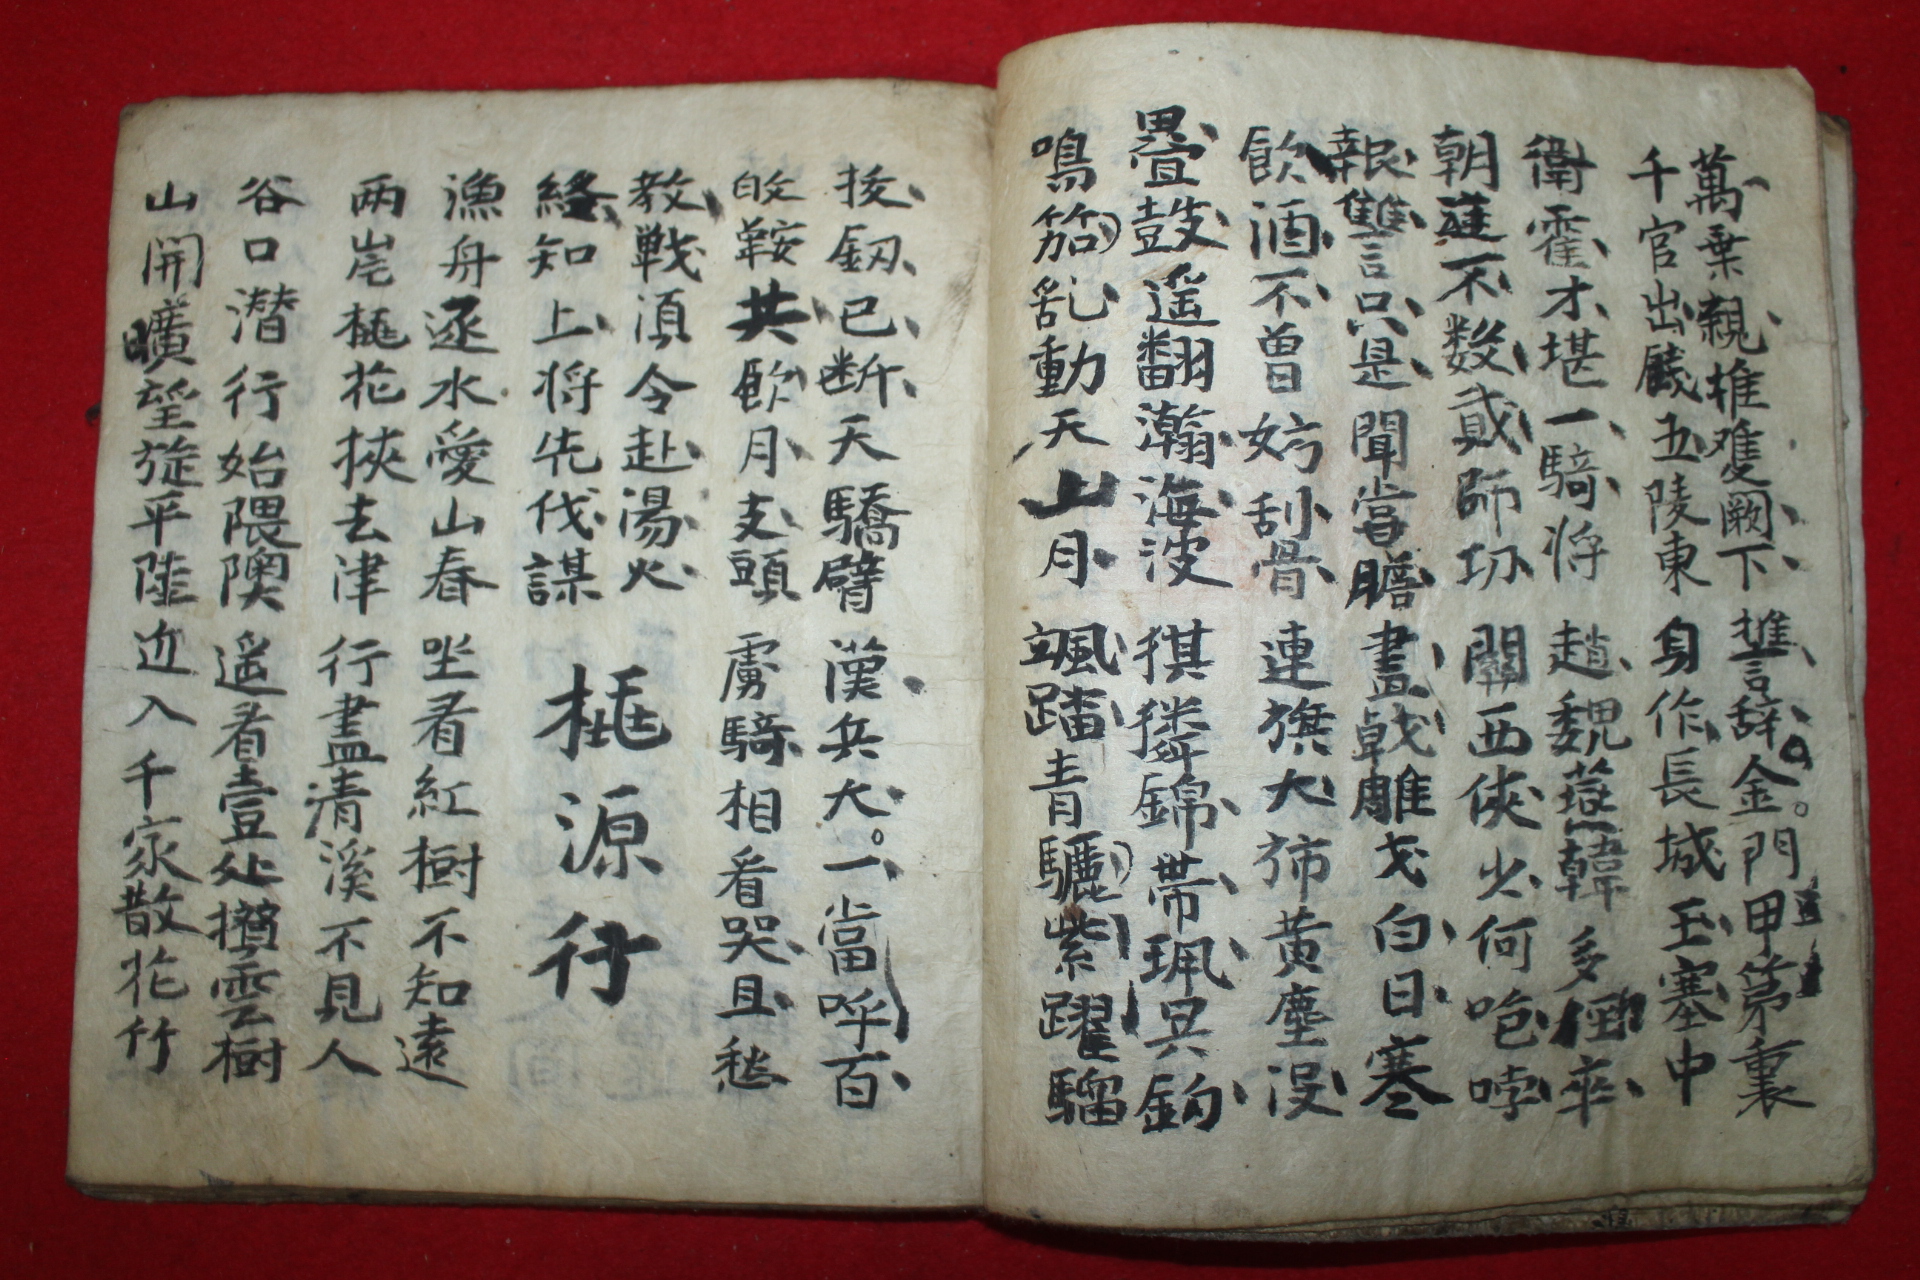 萬乗親推雙闕下 誓辭金門甲第裏
千官出餞五陵東 身作長城玉塞中
衛霍才堪一騎将 趙魏燕韓多勁卒
朝廷不数貳師功 關西俠少何咆哱
報讐只是聞嘗膽 畫戟雕戈白日寒
飮酒不曾妨刮骨 連旗大斾黃塵没
疊鼓遥翻瀚海波 猉獜錦帶珮吳鈎
鳴笳乱動天山月 颯踏青驪紫躍騮
拔釼已断天驕臂 漢兵大一當呼百
皈鞍共飮月支頭 虜騎相看哭且愁
教戦湏令赴湯火
終知上将先伐謀
桃源行
漁舟逐水愛山春 坐看紅樹不知遠
两岸桃花挾去津 行盡清溪不見人
谷口潜行始隈隩 遥看壹処攢雲樹
山開曠望旋平陸 近入千家散花竹